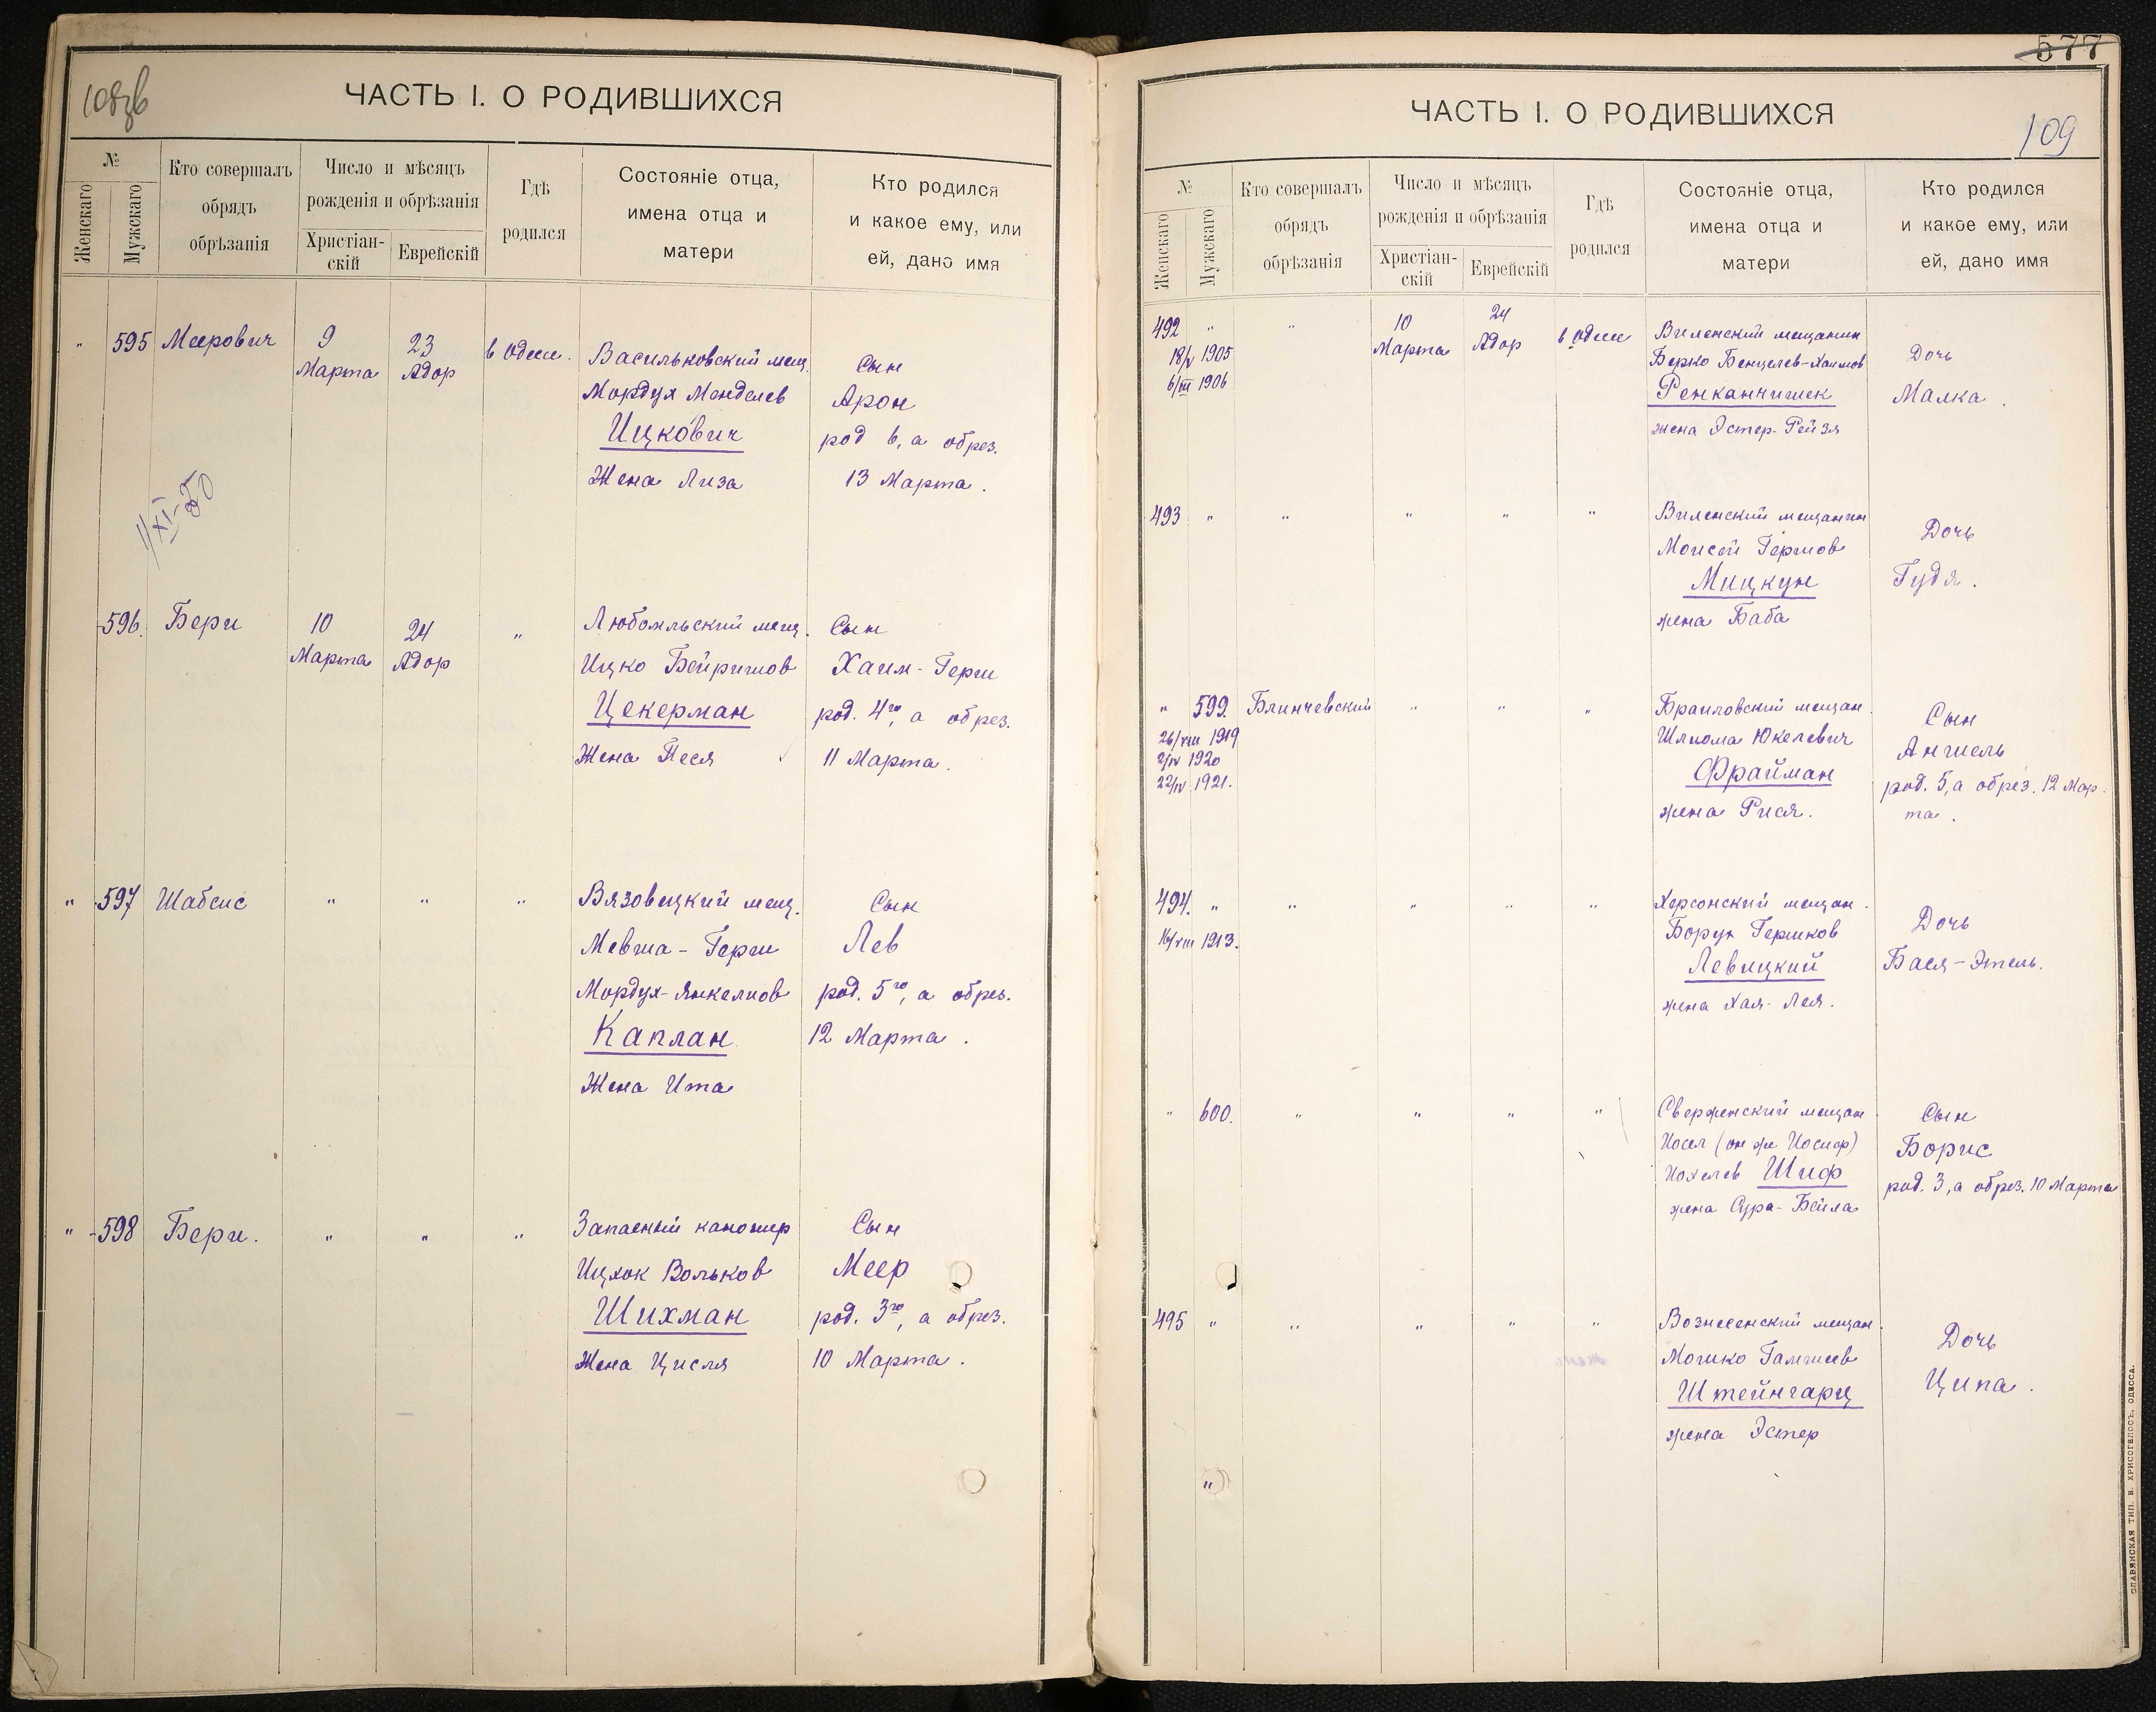 108зв
ЧАСТЬ I. О РОДИВШИХСЯ
№
Женскаго
Мужскаго
Кто совершалъ
обрядъ
обрѣзанія
Число и мѣсяцъ
рожденія и обрѣзанія
Христіан-
скій
Еврейскій
Гдѣ
родился
Состояніе отца,
имена отца и
матери
Кто родился
и какое ему, или
ей, дано имя
" 595 Меерович
9
Марта
23
Адор
в Одессе.
Васильковский мещ.
Мордух Менделев
Ицкович
Жена Лиза
Сын
Арон
род 6, а обрез.
13 Марта.
XI-50
596. Берш
10
Марта
24
Адор
"
Любомльский мещ.
Ицко Бейришов
Цекерман
Жена Песя
Сын
Хаим-Герш
род. 4го, а обрез.
11 Марта.
" 597 Шабсис " " "
Вязовецкий мещ.
Мевша-Герш
Мордух-Янкелиов
Каплан
Жена Ита
Сын
Лев
род. 5го, а обрез.
12 Марта.
" 598 Берш. " " "
Запасный канонир
Ицхок Вольков
Шихман
Жена Цисля
Сын
Меер
род. 3го, а обрез.
10 Марта.
577
ЧАСТЬ I. О РОДИВШИХСЯ
109
№
Женскаго
Мужскаго
Кто совершалъ
обрядъ
обрѣзанія
Число и мѣсяцъ
рожденія и обрѣзанія
Христіан-
скій
Еврейскій
Гдѣ
родился
Состояніе отца,
имена отца и
матери
Кто родился
и какое ему, или
ей, дано имя
492 " "
18/V 1905
6/III 1906
10
Марта
24
Адор
в Одессе
Виленский мещанин
Берко Бенцелев-Хаимов
Ренканчишек
жена Эстер-Рейзя
Дочь
Малка.
493 " " " " "
Виленский мещанин
Моисей Гершов
Мицкун
жена Баба
Дочь
Гудя.
" 599. Блинчевский " " "
26/VIII 1919
2/IV 1920
22/IV 1921.
Браиловский мещан.
Шлиома Юкелевич
Фрайман
жена Рися.
Сын
Аншель
род. 5, а обрез. 12 Мар-
та.
494. " " " " "
16/VIII 1913.
Херсонский мещан.
Борух Гершков
Левицкий
жена Хая-Лея.
Дочь
Бася-Этель.
" 600. " " " "
Сверженский мещан
Иосел (он же Иосиф)
Иохелев Шиф
жена Сура-Бейла
Сын
Борис
род. 3, а обрез. 10 Марта
495 " " " " "
Вознесенский мещан.
Мошко Гамшиев
Штейнгарц
жена Эстер
Дочь
Ципа.
"
СЛАВЯНСКАЯ ТИП. В. ХРИСОГЕЛОСЪ, ОДЕССА.